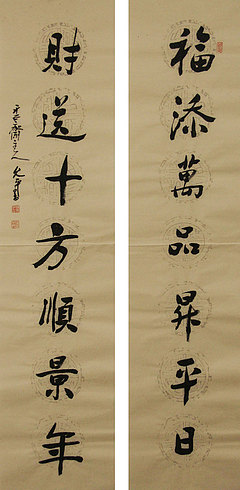 福添萬品昇平日
財送十方順景年